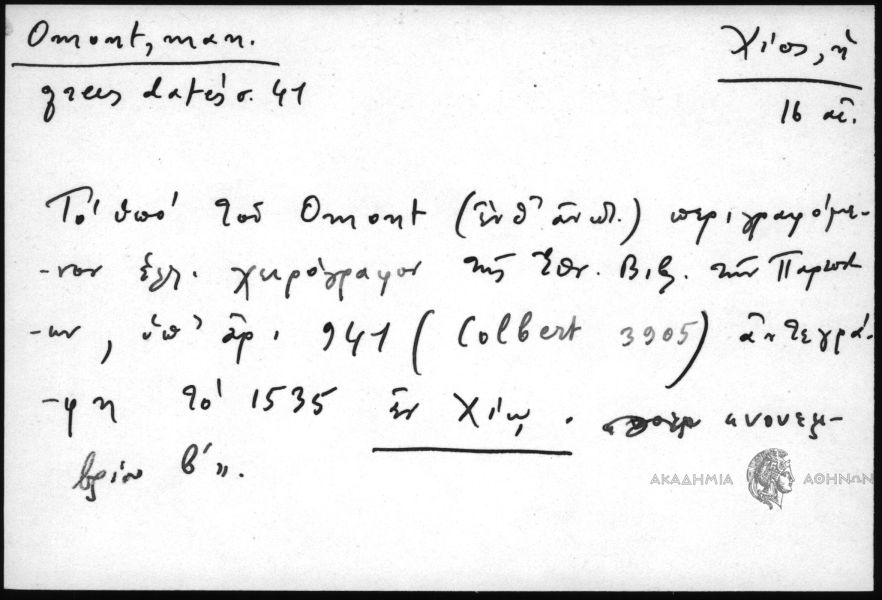 Omont, man.
grecs datés σ. 41
Χίος, ἡ
16 αἰ.
Τό ὑπό τοῦ Omont (ἐνθ' ἀνωτ.) περιγραφόμε-
-νον ἑλλ. χειρόγραφον τῆς Ἐθν. Βιβ. τῶν Παρισί-
-ων, ὑπ' ἀρ. 941 (Colbert 3905) ἀντεγρά-
-φη τό 1535 ἐν Χίῳ. «
βρίου β΄».
ΑΚΑΔΗΜΙΑ ΑΘΗΝΩΝ